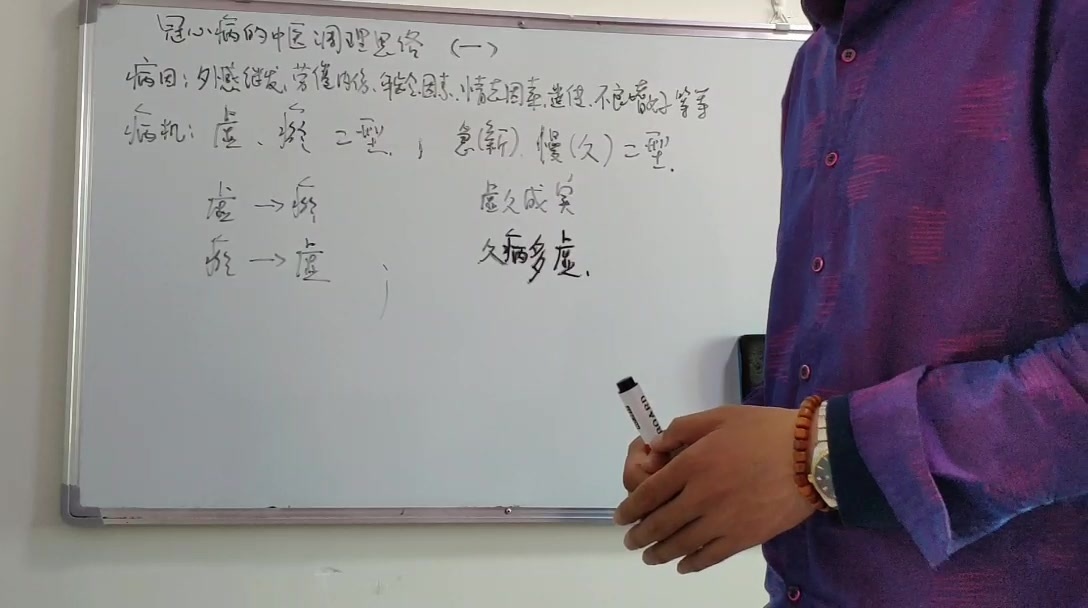 冠心病的中医调理思络 (一)
病因:外感继发、劳倦内伤、年龄因素、情志因素、遗传、不良嗜好等等
病机:虚、瘀二型;急(新)、慢(久)二型.
虚→瘀 虚久成实
瘀→虚; 久病多虚.
BOARD